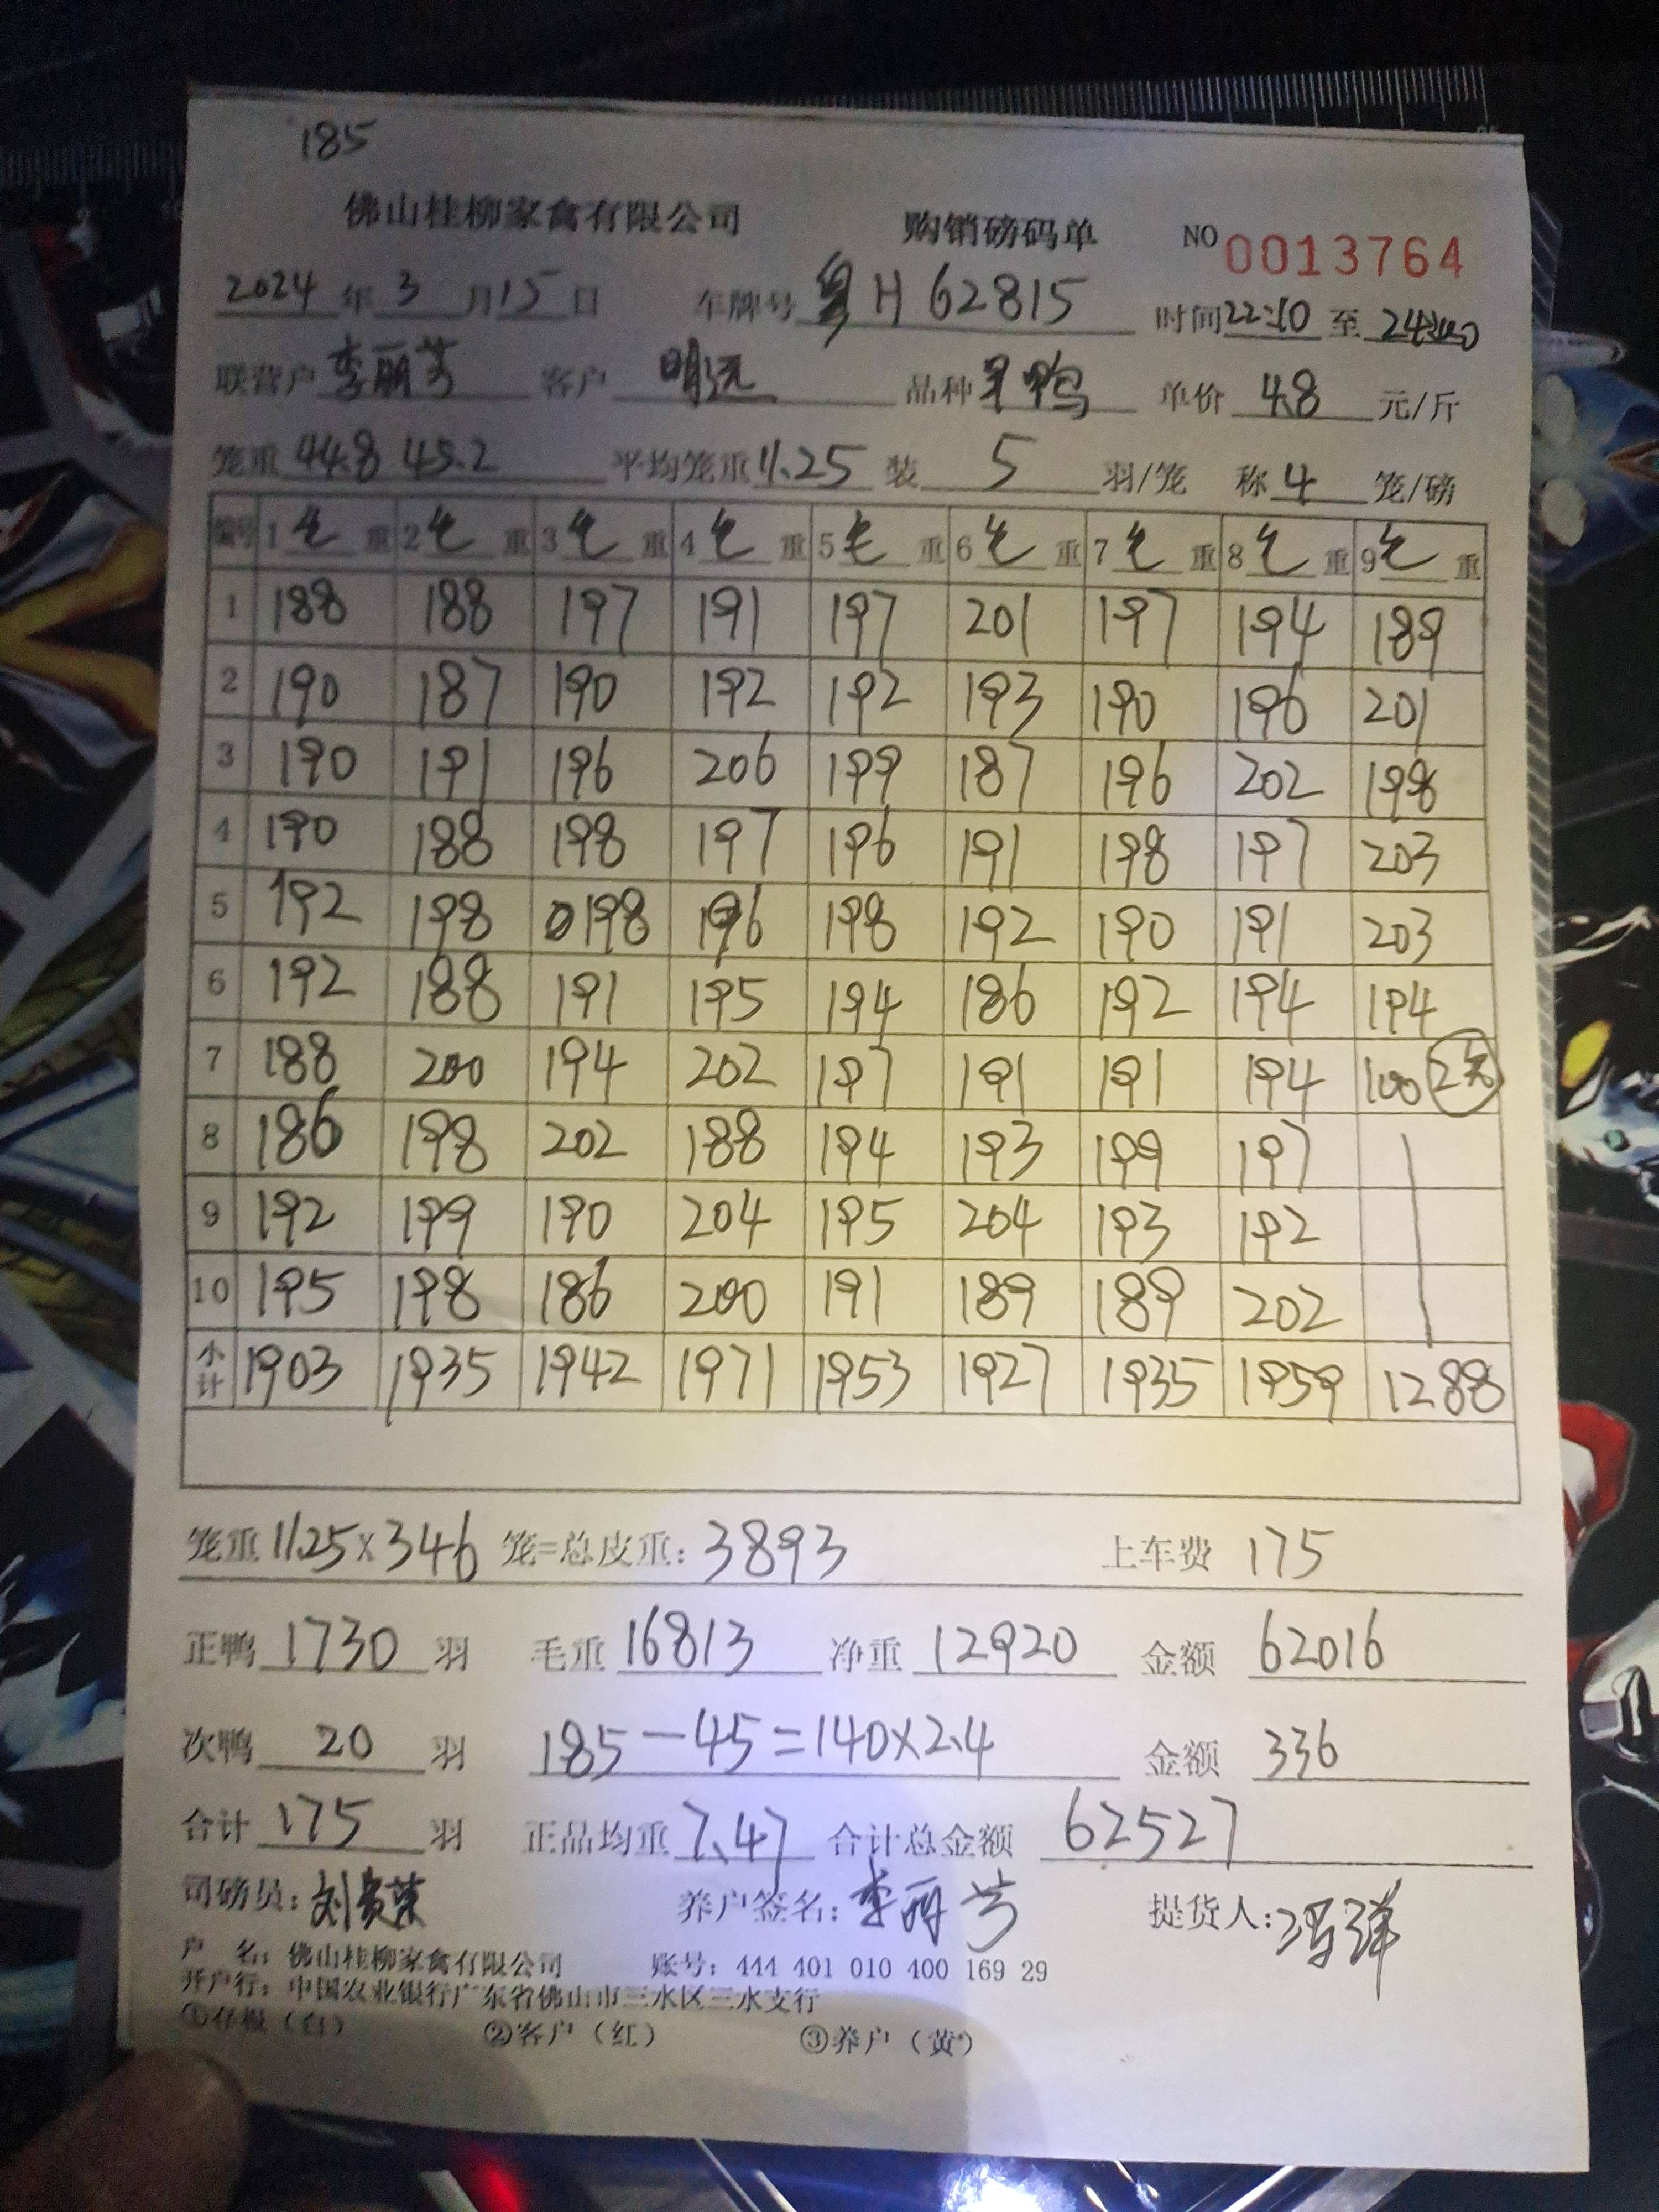 185
佛山桂柳家禽有限公司 购销磅码单 NO 0013764
2024 年 3 月 15 日 车牌号 粤H 62815 时间 22:10 至
联营户 李丽芳 客户 明远 品种 单价 4.8 元/斤
笼重 44.8 45.2 平均笼重 11.25 装 5 羽/笼 称 4 笼/磅
编号 1 毛 重 2 毛 重 3 毛 重 4 毛 重 5 毛 重 6 毛 重 7 毛 重 8 毛 重 9 毛 重
1 188 188 197 191 197 201 197 194 189
2 190 187 190 192 192 193 190 196 201
3 190 191 196 206 199 187 196 202 198
4 190 188 198 197 196 191 198 197 203
5 192 198 198 196 198 192 190 191 203
6 192 188 191 195 194 186 192 194 194
7 188 200 194 202 197 191 191 194 100 2笼
8 186 198 202 188 194 193 199 197
9 192 199 190 204 195 204 193 192
10 195 198 186 200 191 189 189 202
小计 1903 1935 1942 1971 1953 1927 1935 1959 1288
笼重 11.25×346 笼=总皮重: 3893 上车费 175
正鸭 1730 羽 毛重 16813 净重 12920 金额 62016
次鸭 20 羽 185-45=140×2.4 金额 336
合计 175 羽 正品均重 7.47 合计总金额 62527
司磅员: 养户签名: 李丽芳 提货人:
户 名: 佛山桂柳家禽有限公司 账号: 444 401 010 400 169 29
开户行: 中国农业银行广东省佛山市三水区三水支行
①存根（白） ②客户（红） ③养户（黄）